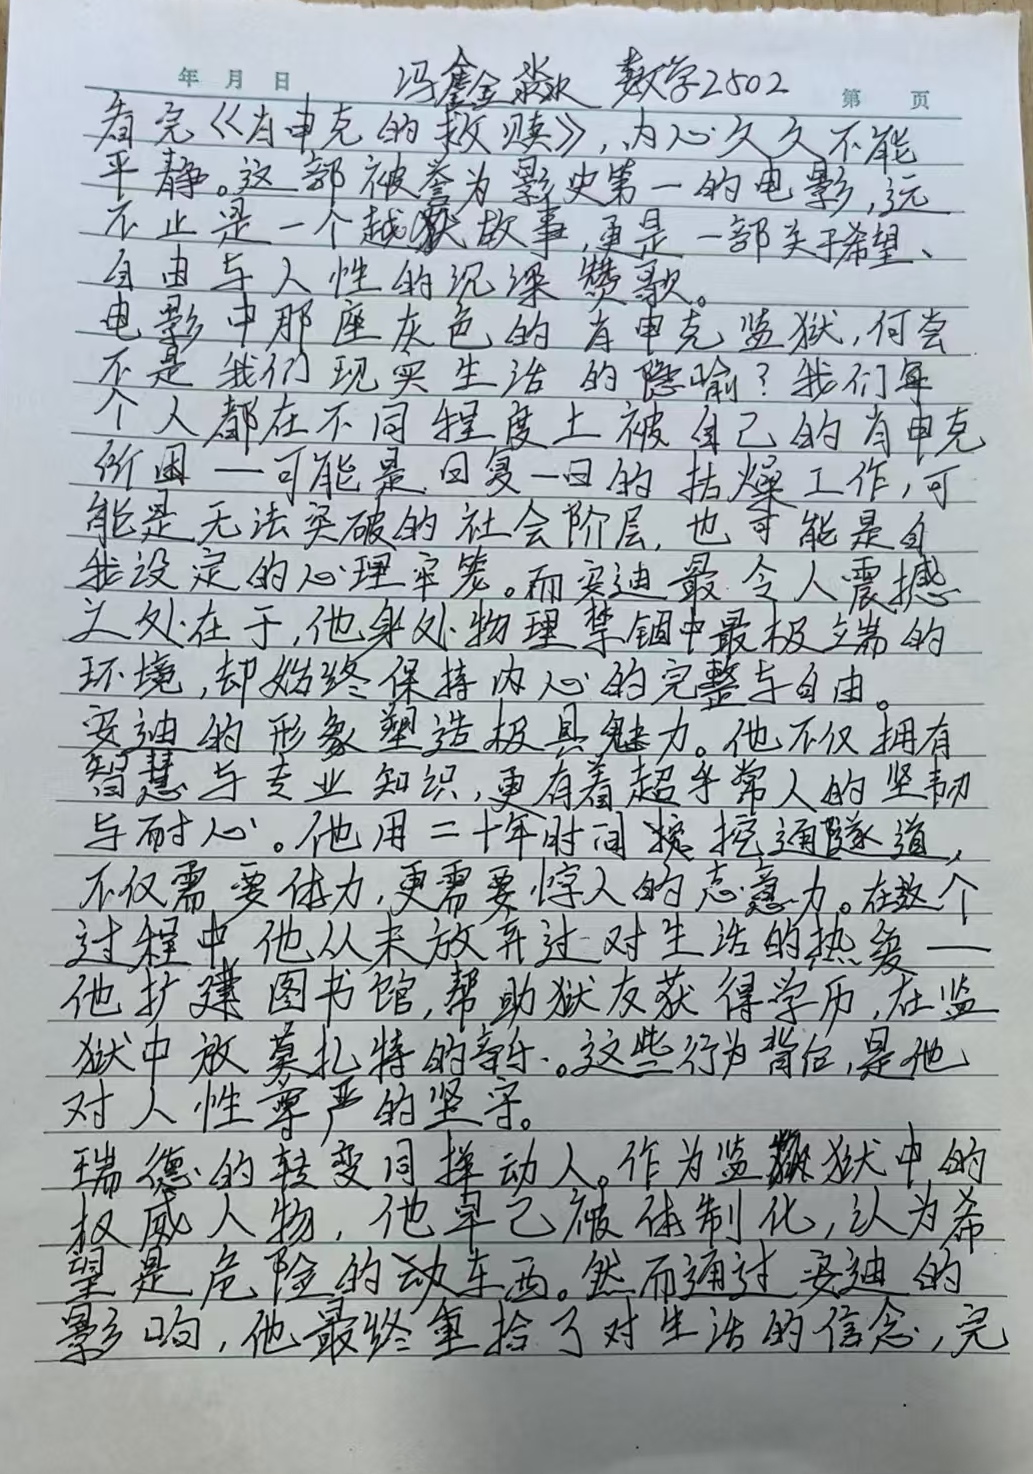 年 月 日
冯鑫淼 数学2502
第 页
看完《肖申克的救赎》,内心久久不能
平静。这部被誉为影史第一的电影,远
不止是一个越狱故事,更是一部关于希望、
自由与人性的沉深赞歌。
电影中那座灰色的肖申克监狱,何尝
不是我们现实生活的隐喻?我们每
个人都在不同程度上被自己的肖申克
所困一可能是日复一日的枯燥工作,可
能是无法突破的社会阶层,也可能是自
我设定的心理牢笼。而安迪最令人震撼
之处在于,他身处物理禁锢中最极端的
环境,却始终保持内心的完整与自由。
安迪的形象塑造极具魅力。他不仅拥有
智慧与专业知识,更有着超乎常人的坚韧
与耐心。他用二十年时间挖通隧道,
不仅需要体力,更需要惊人的意力。在这个
过程中他从未放弃过对生活的热爱一
他扩建图书馆,帮助狱友获得学历,在监
狱中放莫扎特的音乐。这些行为背后,是他
对人性尊严的坚守。
瑞德的转变同样动人。作为监狱中的
权威人物,他早已被体制化,认为希
望是危险的东西。然而通过安迪的
影响,他最终重拾了对生活的信念,完